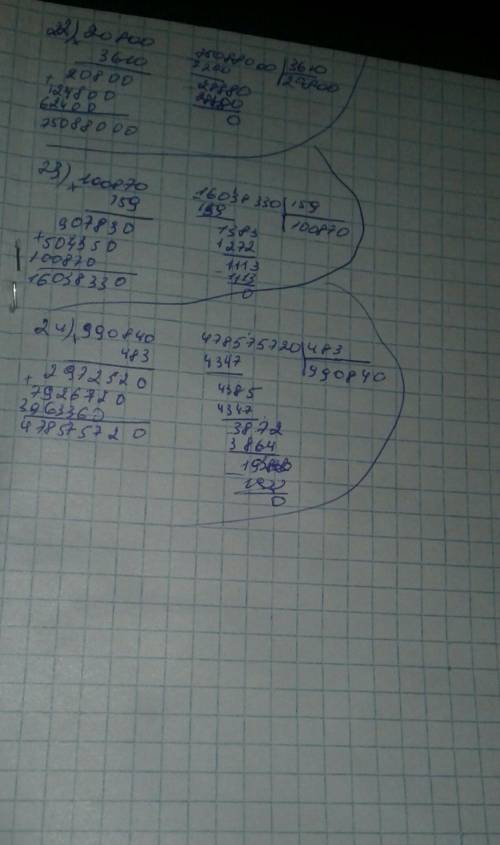 22) 20800
3610
+ 20800
124800
62400
75088000
75088000 3610
7200 20800
28880
28880
0
23) 100870
159
907830
+504350
100870
16038330
16038330 159
159 100870
1383
1272
1113
1113
0
24) 990840
483
2972520
+ 7926720
3963360
478575720
478575720 483
4347 990840
4385
4347
3872
3864
1932
0